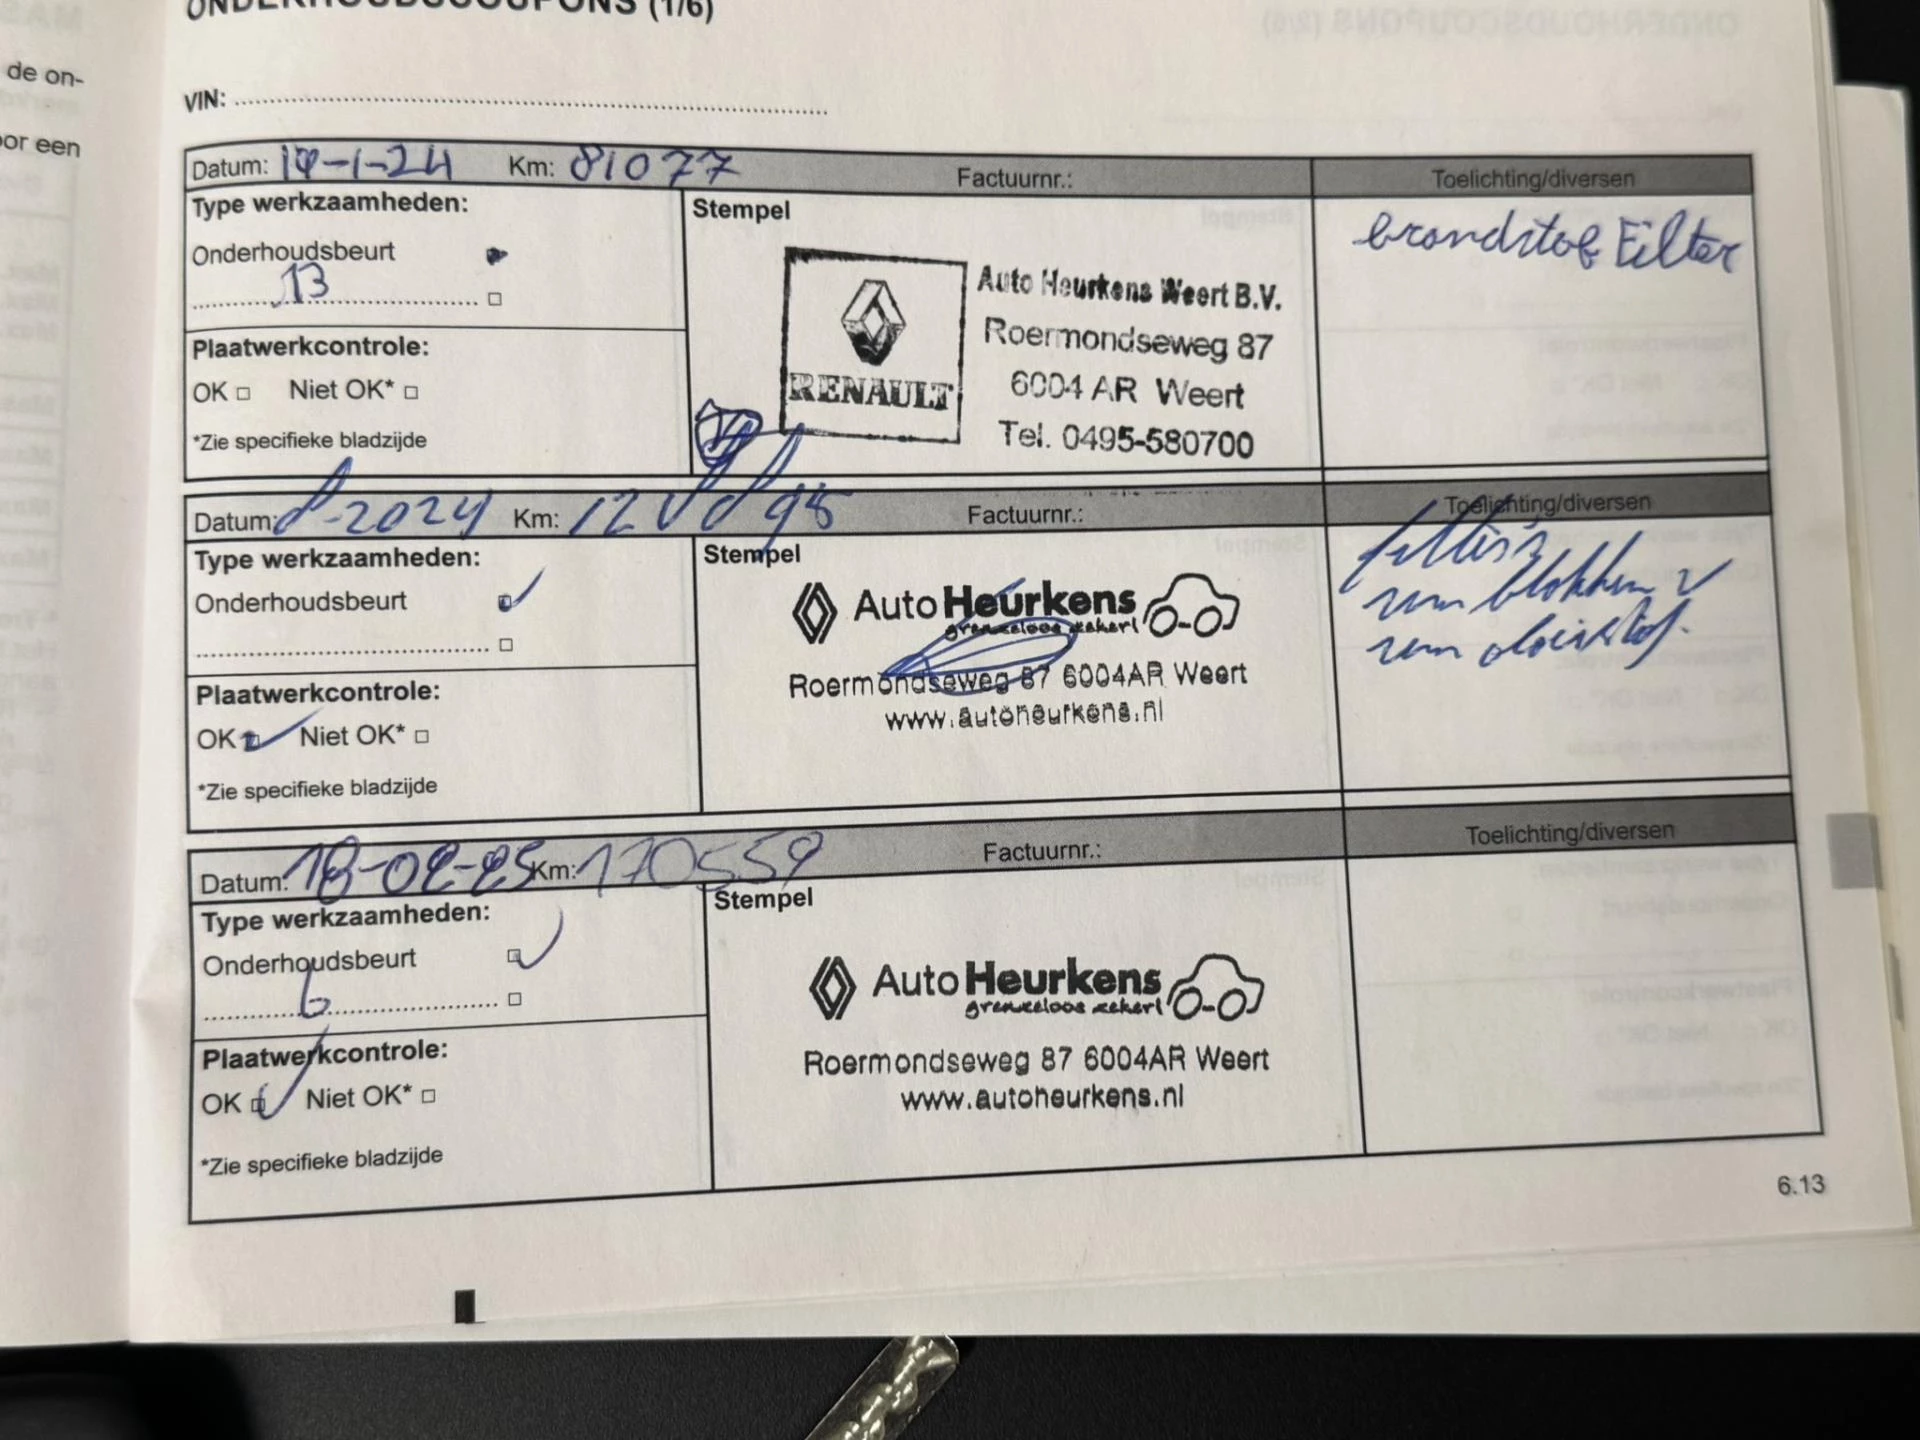 ONDERHOUDSCOUPONS (1/6)
de on-
oor een
VIN:
Datum: 17-1-24 Km: 81077 Factuurnr.: Toelichting/diversen
Type werkzaamheden:
Onderhoudsbeurt
13
Stempel
brandstof Filter
RENAULT
Auto Heurkens Weert B.V.
Roermondseweg 87
6004 AR Weert
Tel. 0495-580700
Plaatwerkcontrole:
OK Niet OK*
*Zie specifieke bladzijde
Datum: -2024 Km: Factuurnr.: Toelichting/diversen
Type werkzaamheden:
Onderhoudsbeurt
Stempel
Auto Heurkens
grenzeloos zeker!
Roermondseweg 87 6004AR Weert
www.autoheurkens.nl
filters
rem blokken v
rem vloeistof.
Plaatwerkcontrole:
OK Niet OK*
*Zie specifieke bladzijde
Datum: 18-02-25 Km: 170559 Factuurnr.: Toelichting/diversen
Type werkzaamheden:
Onderhoudsbeurt
6
Stempel
Auto Heurkens
grenzeloos zeker!
Roermondseweg 87 6004AR Weert
www.autoheurkens.nl
Plaatwerkcontrole:
OK Niet OK*
*Zie specifieke bladzijde
6.13